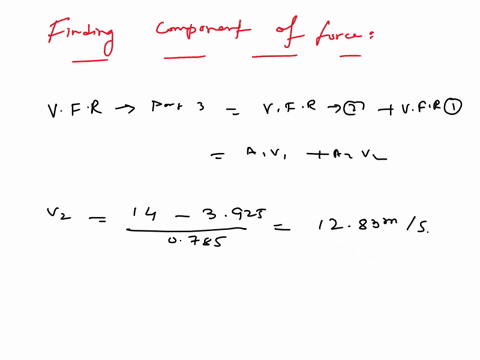 Finding component of force:
V.F.R → Port 3 = V.F.R → ② + V.F.R ①
= A₁V₁ + A₂V₂
V2 = 14 - 3.925 / 0.785 = 12.83 m/s.